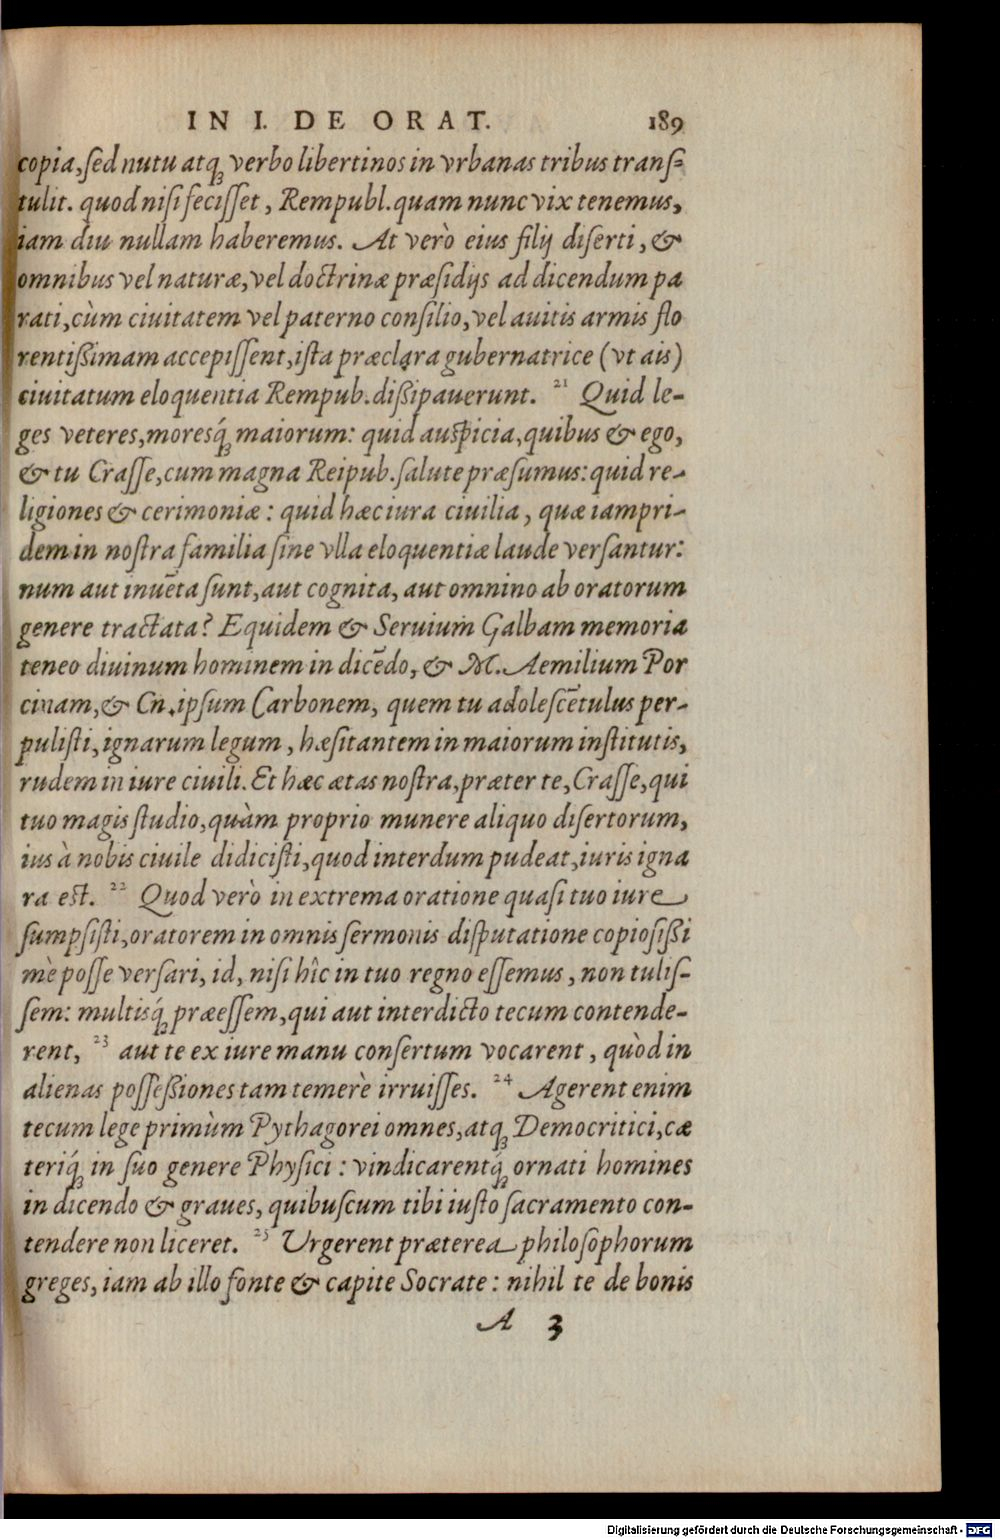 IN I. DE ORAT. 189
copia, sed nutu atq́; verbo libertinos in vrbanas tribus trans-
tulit. quod nisi fecisset, Rempubl. quam nunc vix tenemus,
iam diu nullam haberemus. At verò eius filij diserti, &
omnibus vel naturæ, vel doctrinæ præsidijs ad dicendum pa
rati, cùm ciuitatem vel paterno consilio, vel auitis armis flo
rentißimam accepissent, ista præclara gubernatrice (vt ais)
ciuitatum eloquentia Rempub. dißipauerunt. 21 Quid le-
ges veteres, moresq́; maiorum: quid auspicia, quibus & ego,
& tu Crasse, cum magna Reipub. salute præsumus: quid re-
ligiones & cerimoniæ: quid hæc iura ciuilia, quæ iampri-
dem in nostra familia sine vlla eloquentiæ laude versantur:
num aut inuēta sunt, aut cognita, aut omnino ab oratorum
genere tractata? Equidem & Seruium Galbam memoria
teneo diuinum hominem in dicēdo, & M. Aemilium Por
cinam, & Cn. ipsum Carbonem, quem tu adolescētulus per-
pulisti, ignarum legum, hæsitantem in maiorum institutis,
rudem in iure ciuili. Et hæc ætas nostra, præter te, Crasse, qui
tuo magis studio, quàm proprio munere aliquo disertorum,
ius à nobis ciuile didicisti, quod interdum pudeat, iuris igna
ra est. 22 Quod verò in extrema oratione quasi tuo iure
sumpsisti, oratorem in omnis sermonis disputatione copiosißi
mè posse versari, id, nisi hîc in tuo regno essemus, non tulis-
sem: multisq́; præessem, qui aut interdicto tecum contende-
rent, 23 aut te ex iure manu consertum vocarent, quòd in
alienas posseßiones tam temerè irruisses. 24 Agerent enim
tecum lege primùm Pythagorei omnes, atq; Democritici, cæ
teriq́; in suo genere Physici: vindicarentq́; ornati homines
in dicendo & graues, quibuscum tibi iusto sacramento con-
tendere non liceret. 25 Urgerent præterea philosophorum
greges, iam ab illo fonte & capite Socrate: nihil te de bonis
A 3
Digitalisierung gefördert durch die Deutsche Forschungsgemeinschaft - DFG